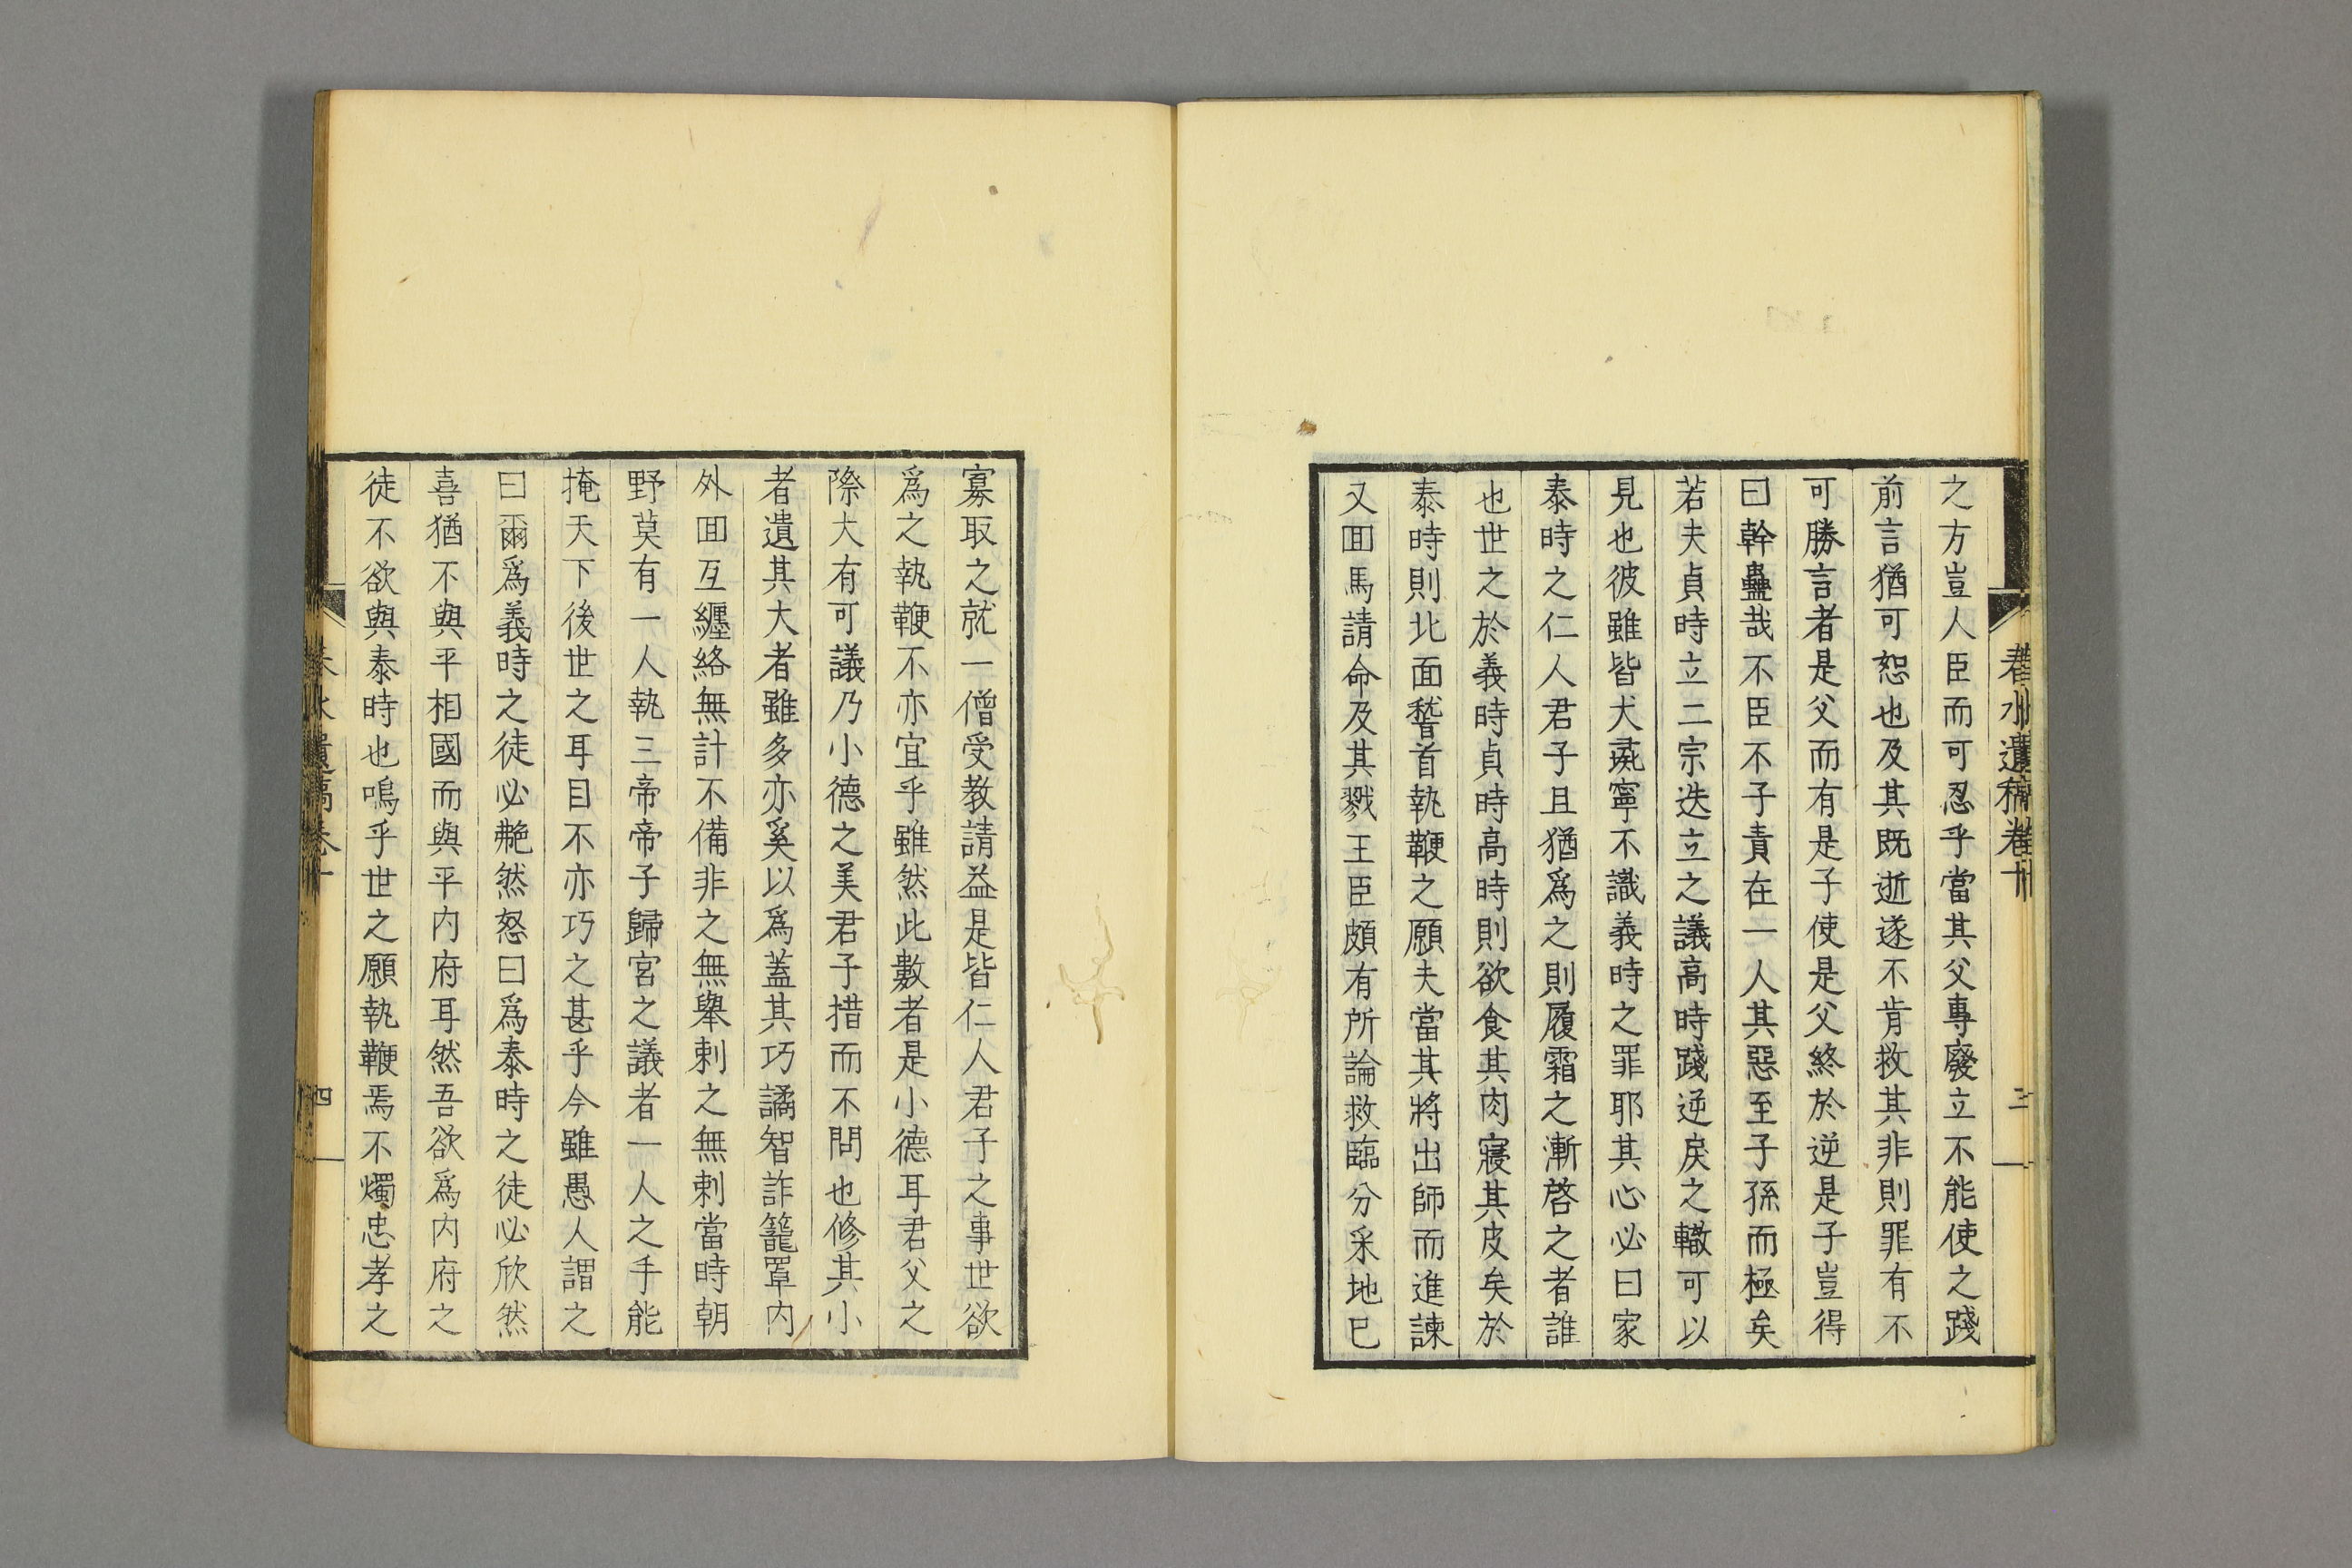 之方豈人臣而可忍乎當其父專廢立不能使之踐
前言猶可恕也及其既逝遂不肯救其非則罪有不
可勝言者是父而有是子使是父終於逆是子豈得
曰幹蠱哉不臣不子責在一人其惡至子孫而極矣
若夫貞時立二宗迭立之議高時踐逆戾之轍可以
見也彼雖皆犬彘寧不識義時之罪耶其心必曰家
泰時之仁人君子且猶爲之則履霜之漸啓之者誰
也世之於義時貞時高時則欲食其肉寢其皮矣於
泰時則北面稽首執鞭之願夫當其將出師而進諫
又囬馬請命及其戮王臣頗有所論救臨分采地已
寡取之就一僧受教請益是皆仁人君子之事世欲
爲之執鞭不亦宜乎雖然此數者是小德耳君父之
際大有可議乃小德之美君子措而不問也修其小
者遺其大者雖多亦奚以爲蓋其巧譎智詐籠罩內
外囬互纏絡無計不備非之無舉刺之無刺當時朝
野莫有一人執三帝帝子歸宮之議者一人之手能
掩天下後世之耳目不亦巧之甚乎今雖愚人謂之
曰爾爲義時之徒必艴然怒曰爲泰時之徒必欣然
喜猶不與平相國而與平內府耳然吾欲爲內府之
徒不欲與泰時也嗚乎世之願執鞭焉不燭忠孝之
水遺稿卷十
四